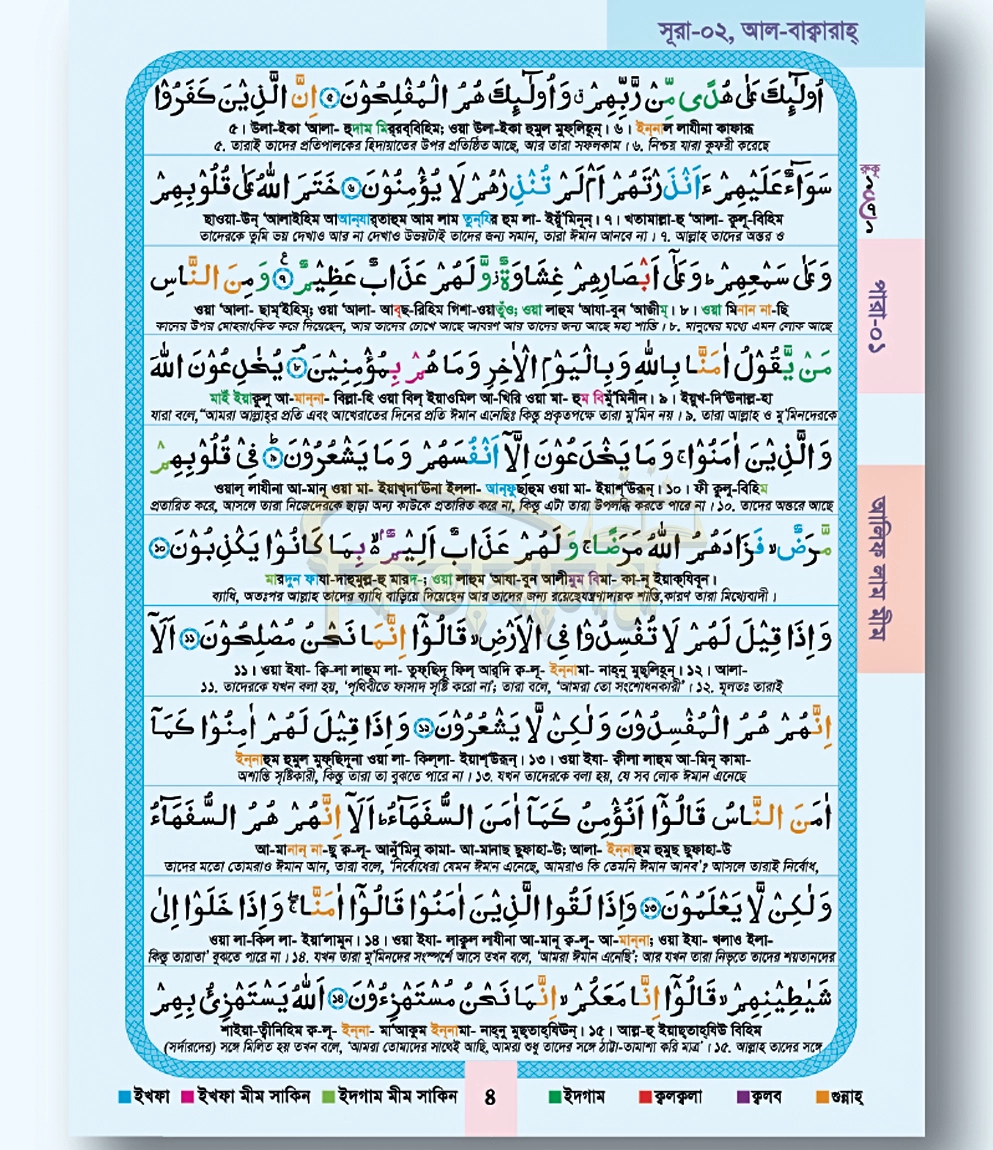 সূরা-০২, আল-বাক্বারাহ্
اُولٰٓئِكَ عَلٰى هُدًى مِّنْ رَّبِّهِمْ ۗ وَاُولٰٓئِكَ هُمُ الْمُفْلِحُوْنَ ۝٥ اِنَّ الَّذِيْنَ كَفَرُوْا
৫। উলা-ইকা 'আলা- হুদাম মিররব্বিহিম; ওয়া উলা-ইকা হুমুল মুফ্লিহূন্। ৬। ইন্নাল লাযীনা কাফারূ
৫. তারাই তাদের প্রতিপালকের হিদায়াতের উপর প্রতিষ্ঠিত আছে, আর তারা সফলকাম। ৬. নিশ্চয় যারা কুফরী করেছে
سَوَآءٌ عَلَيْهِمْ ءَاَنْذَرْتَهُمْ اَمْ لَمْ تُنْذِرْهُمْ لَا يُؤْمِنُوْنَ ۝٦ خَتَمَ اللّٰهُ عَلٰى قُلُوْبِهِمْ
ছাওয়া-উন্ 'আলাইহিম আআন্যার্‌তাহুম আম লাম তুন্‌যির হুম লা- ইয়ু'মিনূন্। ৭। খতামাল্লা-হু 'আলা- কুলূ-বিহিম
তাদেরকে তুমি ভয় দেখাও আর না দেখাও উভয়টাই তাদের জন্য সমান, তারা ঈমান আনবে না। ৭. আল্লাহ তাদের অন্তর ও
রুকু
১
৭
১
وَعَلٰى سَمْعِهِمْ ؕ وَعَلٰٓى اَبْصَارِهِمْ غِشَاوَةٌ ؗ وَّلَهُمْ عَذَابٌ عَظِيْمٌ ۝٧ وَمِنَ النَّاسِ
ওয়া 'আলা- ছাম্'ইহিম্; ওয়া 'আলা- আবৃছ-রিহিম গিশা-ওয়াতুঁও; ওয়া লাহুম 'আযা-বুন 'আজীম্। ৮। ওয়া মিনান না-ছি
কানের উপর মোহরাংকিত করে দিয়েছেন, আর তাদের চোখে আছে আবরণ আর তাদের জন্য আছে মহা শাস্তি। ৮. মানুষের মধ্যে এমন লোক আছে
পারা-০১
مَنْ يَّقُوْلُ اٰمَنَّا بِاللّٰهِ وَبِالْيَوْمِ الْاٰخِرِ وَمَا هُمْ بِمُؤْمِنِيْنَ ۝٨ يُخٰدِعُوْنَ اللّٰهَ
মাইঁ ইয়াকুলু আ-মান্না- বিল্লা-হি ওয়া বিল্ ইয়াওমিল আ-খিরি ওয়া মা- হুম বিমু'মিনীন। ৯। ইয়ুখ-দি'ঊনাল্ল-হা
যারা বলে, "আমরা আল্লাহ্‌র প্রতি এবং আখেরাতের দিনের প্রতি ঈমান এনেছিঃ কিন্তু প্রকৃতপক্ষে তারা মু'মিন নয়। ৯. তারা আল্লাহ ও মু'মিনদেরকে
وَالَّذِيْنَ اٰمَنُوْا ۚ وَمَا يَخْدَعُوْنَ اِلَّآ اَنْفُسَهُمْ وَمَا يَشْعُرُوْنَ ۝٩ فِيْ قُلُوْبِهِمْ
ওয়াল্ লাযীনা আ-মানূ ওয়া মা- ইয়াখ্দা'ঊনা ইললা- আন্‌ফুছাহুম ওয়া মা- ইয়াশ্'উরূন্। ১০। ফী কুলূ-বিহিম
প্রতারিত করে, আসলে তারা নিজেদেরকে ছাড়া অন্য কাউকে প্রতারিত করে না, কিন্তু এটা তারা উপলব্ধি করতে পারে না। ১০. তাদের অন্তরে আছে
আলিফ লাম মীম
مَّرَضٌ ۙ فَزَادَهُمُ اللّٰهُ مَرَضًا ۚ وَلَهُمْ عَذَابٌ اَلِيْمٌ ۙ بِمَا كَانُوْا يَكْذِبُوْنَ ۝١٠
মারদুন ফাযা-দাহুমুল্ল-হু মারদ-; ওয়া লাহুম 'আযা-বুন আলীমুম বিমা- কা-নূ ইয়াক্‌যিবূন।
ব্যাধি, অতঃপর আল্লাহ তাদের ব্যাধি বাড়িয়ে দিয়েছেন আর তাদের জন্য রয়েছেযন্ত্রণাদায়ক শাস্তি,কারণ তারা মিথ্যেবাদী।
وَاِذَا قِيْلَ لَهُمْ لَا تُفْسِدُوْا فِى الْاَرْضِ ۙ قَالُوْٓا اِنَّمَا نَحْنُ مُصْلِحُوْنَ ۝١١ اَلَآ
১১। ওয়া ইযা- ক্বি-লা লাহুম লা- তুফ্ছিদূ ফিল্ আর্‌দ্বি ক্ব-লূ- ইন্নামা- নাহ্নু মুছ্‌লিহূন্। ১২। আলা-
১১. তাদেরকে যখন বলা হয়, 'পৃথিবীতে ফাসাদ সৃষ্টি করো না'; তারা বলে, 'আমরা তো সংশোধনকারী'। ১২. মূলতঃ তারাই
اِنَّهُمْ هُمُ الْمُفْسِدُوْنَ وَلٰكِنْ لَّا يَشْعُرُوْنَ ۝١٢ وَاِذَا قِيْلَ لَهُمْ اٰمِنُوْا كَمَآ
ইন্নাহুম হুমুল মুফ্ছিদূনা ওয়া লা- কিল্লা- ইয়াশ্'উরূন্। ১৩। ওয়া ইযা- ক্বীলা লাহুম আ-মিনূ কামা-
অশান্তি সৃষ্টিকারী, কিন্তু তারা তা বুঝতে পারে না। ১৩. যখন তাদেরকে বলা হয়, যে সব লোক ঈমান এনেছে
اٰمَنَ النَّاسُ قَالُوْٓا اَنُؤْمِنُ كَمَآ اٰمَنَ السُّفَهَآءُ ؕ اَلَآ اِنَّهُمْ هُمُ السُّفَهَآءُ
আ-মানান্ না-ছু ক্ব-লূ- আনু'মিনু কামা- আ-মানাছ ছুফাহা-উ; আলা- ইন্নাহুম হুমুছ ছুফাহা-উ
তাদের মতো তোমরাও ঈমান আন, তারা বলে, 'নির্বোধেরা যেমন ঈমান এনেছে, আমরাও কি তেমনি ঈমান আনব'? আসলে তারাই নির্বোধ,
وَلٰكِنْ لَّا يَعْلَمُوْنَ ۝١٣ وَاِذَا لَقُوا الَّذِيْنَ اٰمَنُوْا قَالُوْٓا اٰمَنَّا ۖۚ وَاِذَا خَلَوْا اِلٰى
ওয়া লা-কিল লা- ইয়া'লামূন। ১৪। ওয়া ইযা- লাকুল লাযীনা আ-মানূ ক্ব-লূ- আ-মান্না; ওয়া ইযা- খলাও ইলা-
কিন্তু তারাতা' বুঝতে পারে না। ১৪. যখন তারা মু'মিনদের সংস্পর্শে আসে তখন বলে, 'আমরা ঈমান এনেছি'; আর যখন তারা নিভৃতে তাদের শয়তানদের
شَيٰطِيْنِهِمْ ۙ قَالُوْٓا اِنَّا مَعَكُمْ ۙ اِنَّمَا نَحْنُ مُسْتَهْزِءُوْنَ ۝١٤ اَللّٰهُ يَسْتَهْزِئُ بِهِمْ
শাইয়া-ত্বীনিহিম ক্ব-লূ- ইন্না- মা'আকুম ইন্নামা- নাহ্নু মুছ্‌তাহ্‌যিঊন্। ১৫। আল্ল-হু ইয়াছ্‌তাহ্‌যিউ বিহিম
(সর্দারদের) সঙ্গে মিলিত হয় তখন বলে, 'আমরা তোমাদের সাথেই আছি, আমরা শুধু তাদের সঙ্গে ঠাট্টা-তামাশা করি মাত্র'। ১৫. আল্লাহ তাদের সঙ্গে
ইখফা ইখফা মীম সাকিন ইদগাম মীম সাকিন ৪ ইদগাম ক্বলক্বলা ক্বলব গুন্নাহ্